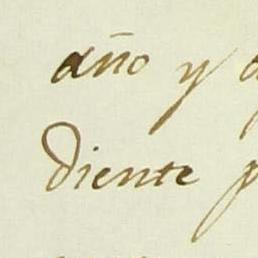 año y
diente